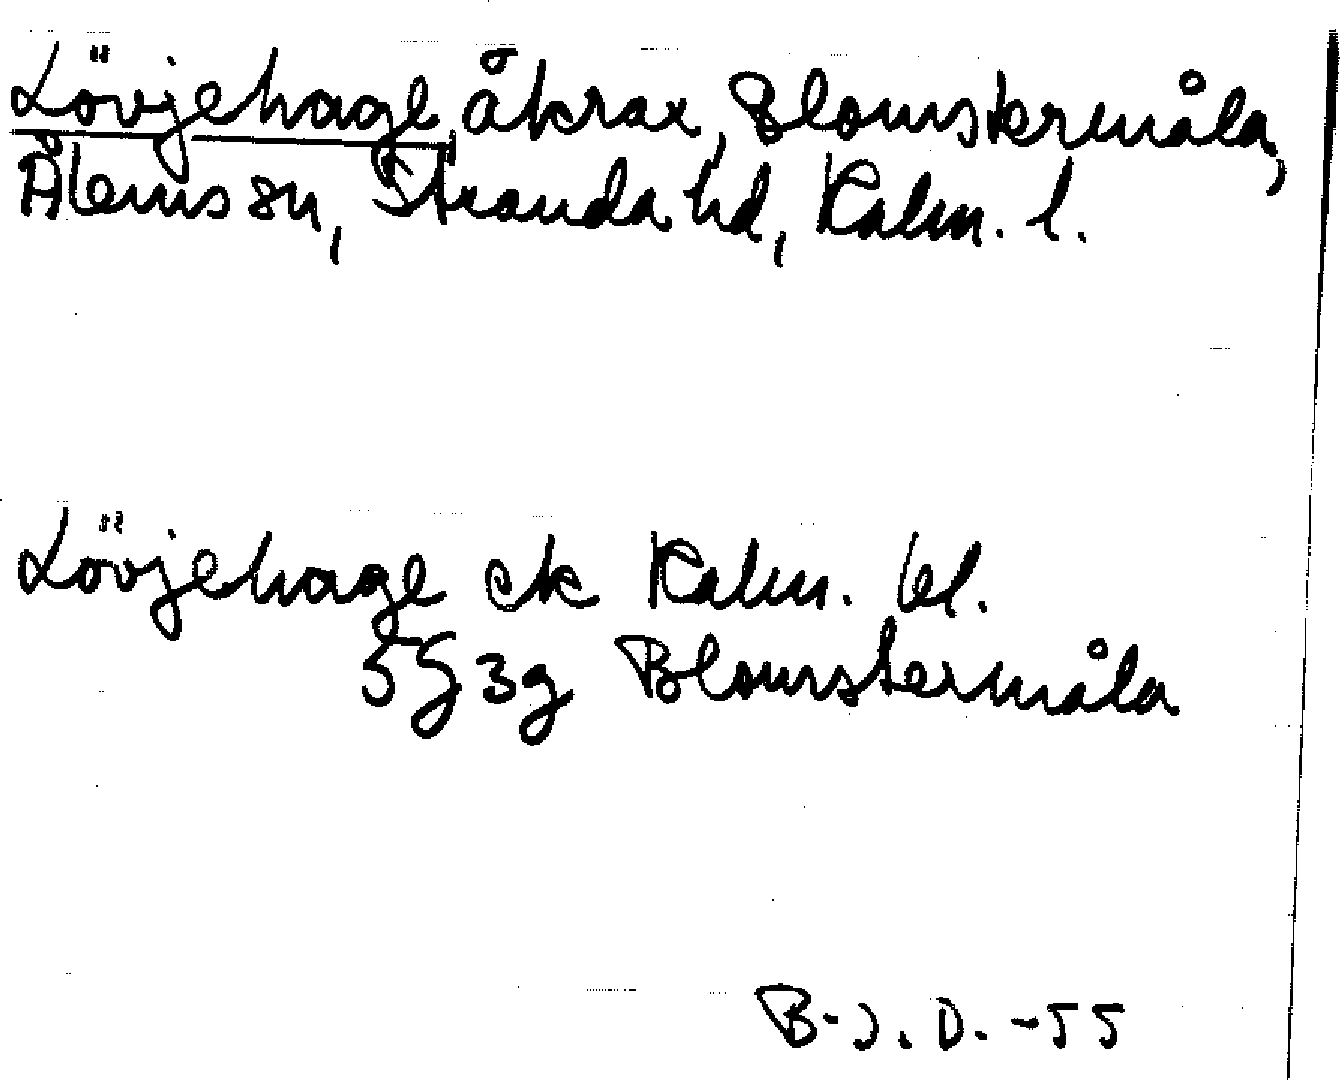 Lövjehage, åkrar, Blomstermåla,
Ålems sn, Stranda hd, Kalm. l.
Lövjehage ek Kalm. bl.
5G3g Blomstermåla
B-J. D. -55